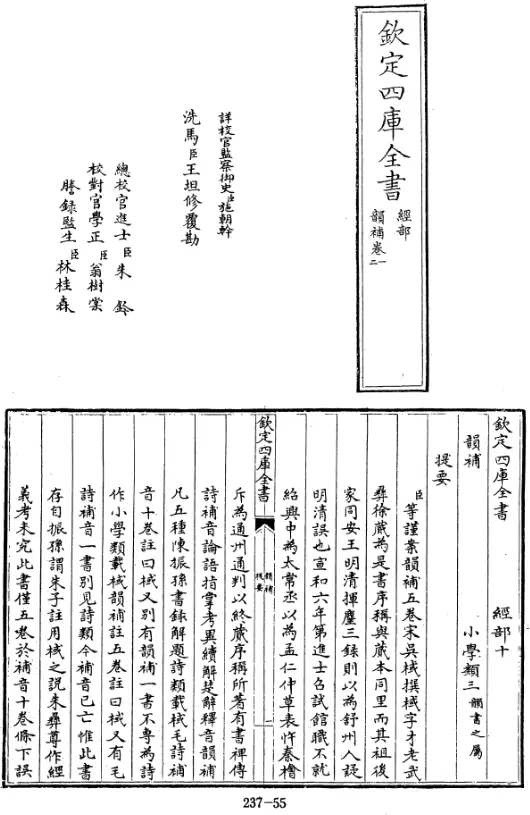 欽定四庫全書
經部
韻補卷一
二
詳校官監察御史臣施朝幹
洗馬臣王坦修覆勘
總校官進士臣朱鈐
校對官學正臣翁樹棠
謄錄監生臣林桂森
欽定四庫全書
經部十
韻補
小學類三韻書之屬
提要
臣等謹案韻補五卷宋吳棫撰棫字才老武
彝徐蕆為是書序稱與蕆本同里而其祖後
家同安王明清揮麈三錄則以為舒州人疑
明清誤也宣和六年第進士召試館職不就
紹興中為太常丞以為孟仁仲草表忤秦檜
欽定四庫全書
韻補
提要
一
斥為通州通判以終蕆序稱所著有書裨傳
詩補音論語指掌考異續解楚辭釋音韻補
凡五種陳振孫書錄解題詩類載棫毛詩補
音十卷註曰棫又别有韻補一書不專為詩
作小學類載棫韻補註五卷註曰棫又有毛
詩補音一書别見詩類今補音已亡惟此書
存自振孫謂朱子註用棫之說朱彝尊作經
義考未究此書僅五卷於補音十卷條下誤
237-55